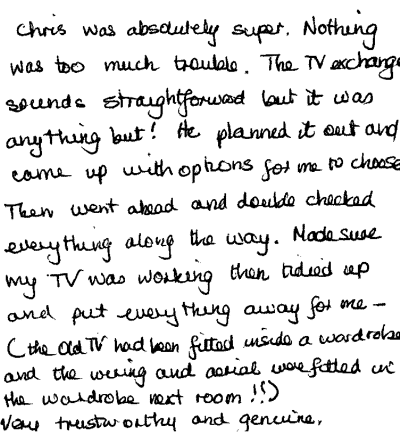 Chris was absolutely super. Nothing
was too much trouble. The TV exchange
sounds straightforward but it was
anything but! He planned it out and
came up with options for me to choose
Then went ahead and double checked
everything along the way. Made sure
my TV was working then tidied up
and put everything away for me –
(the old TV had been fitted inside a wardrobe
and the wiring and aerial were fitted in
the wardrobe next room!!)
Very trustworthy and genuine.